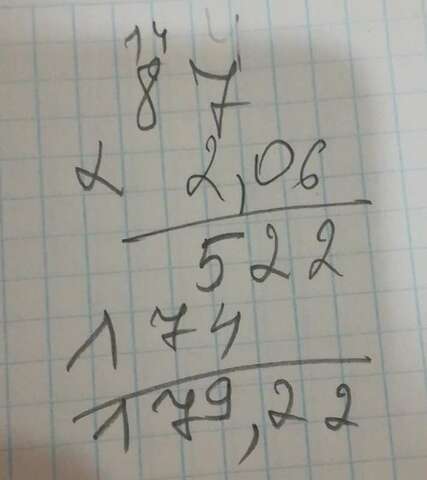 14
87
x 2,06
522
174
179,22